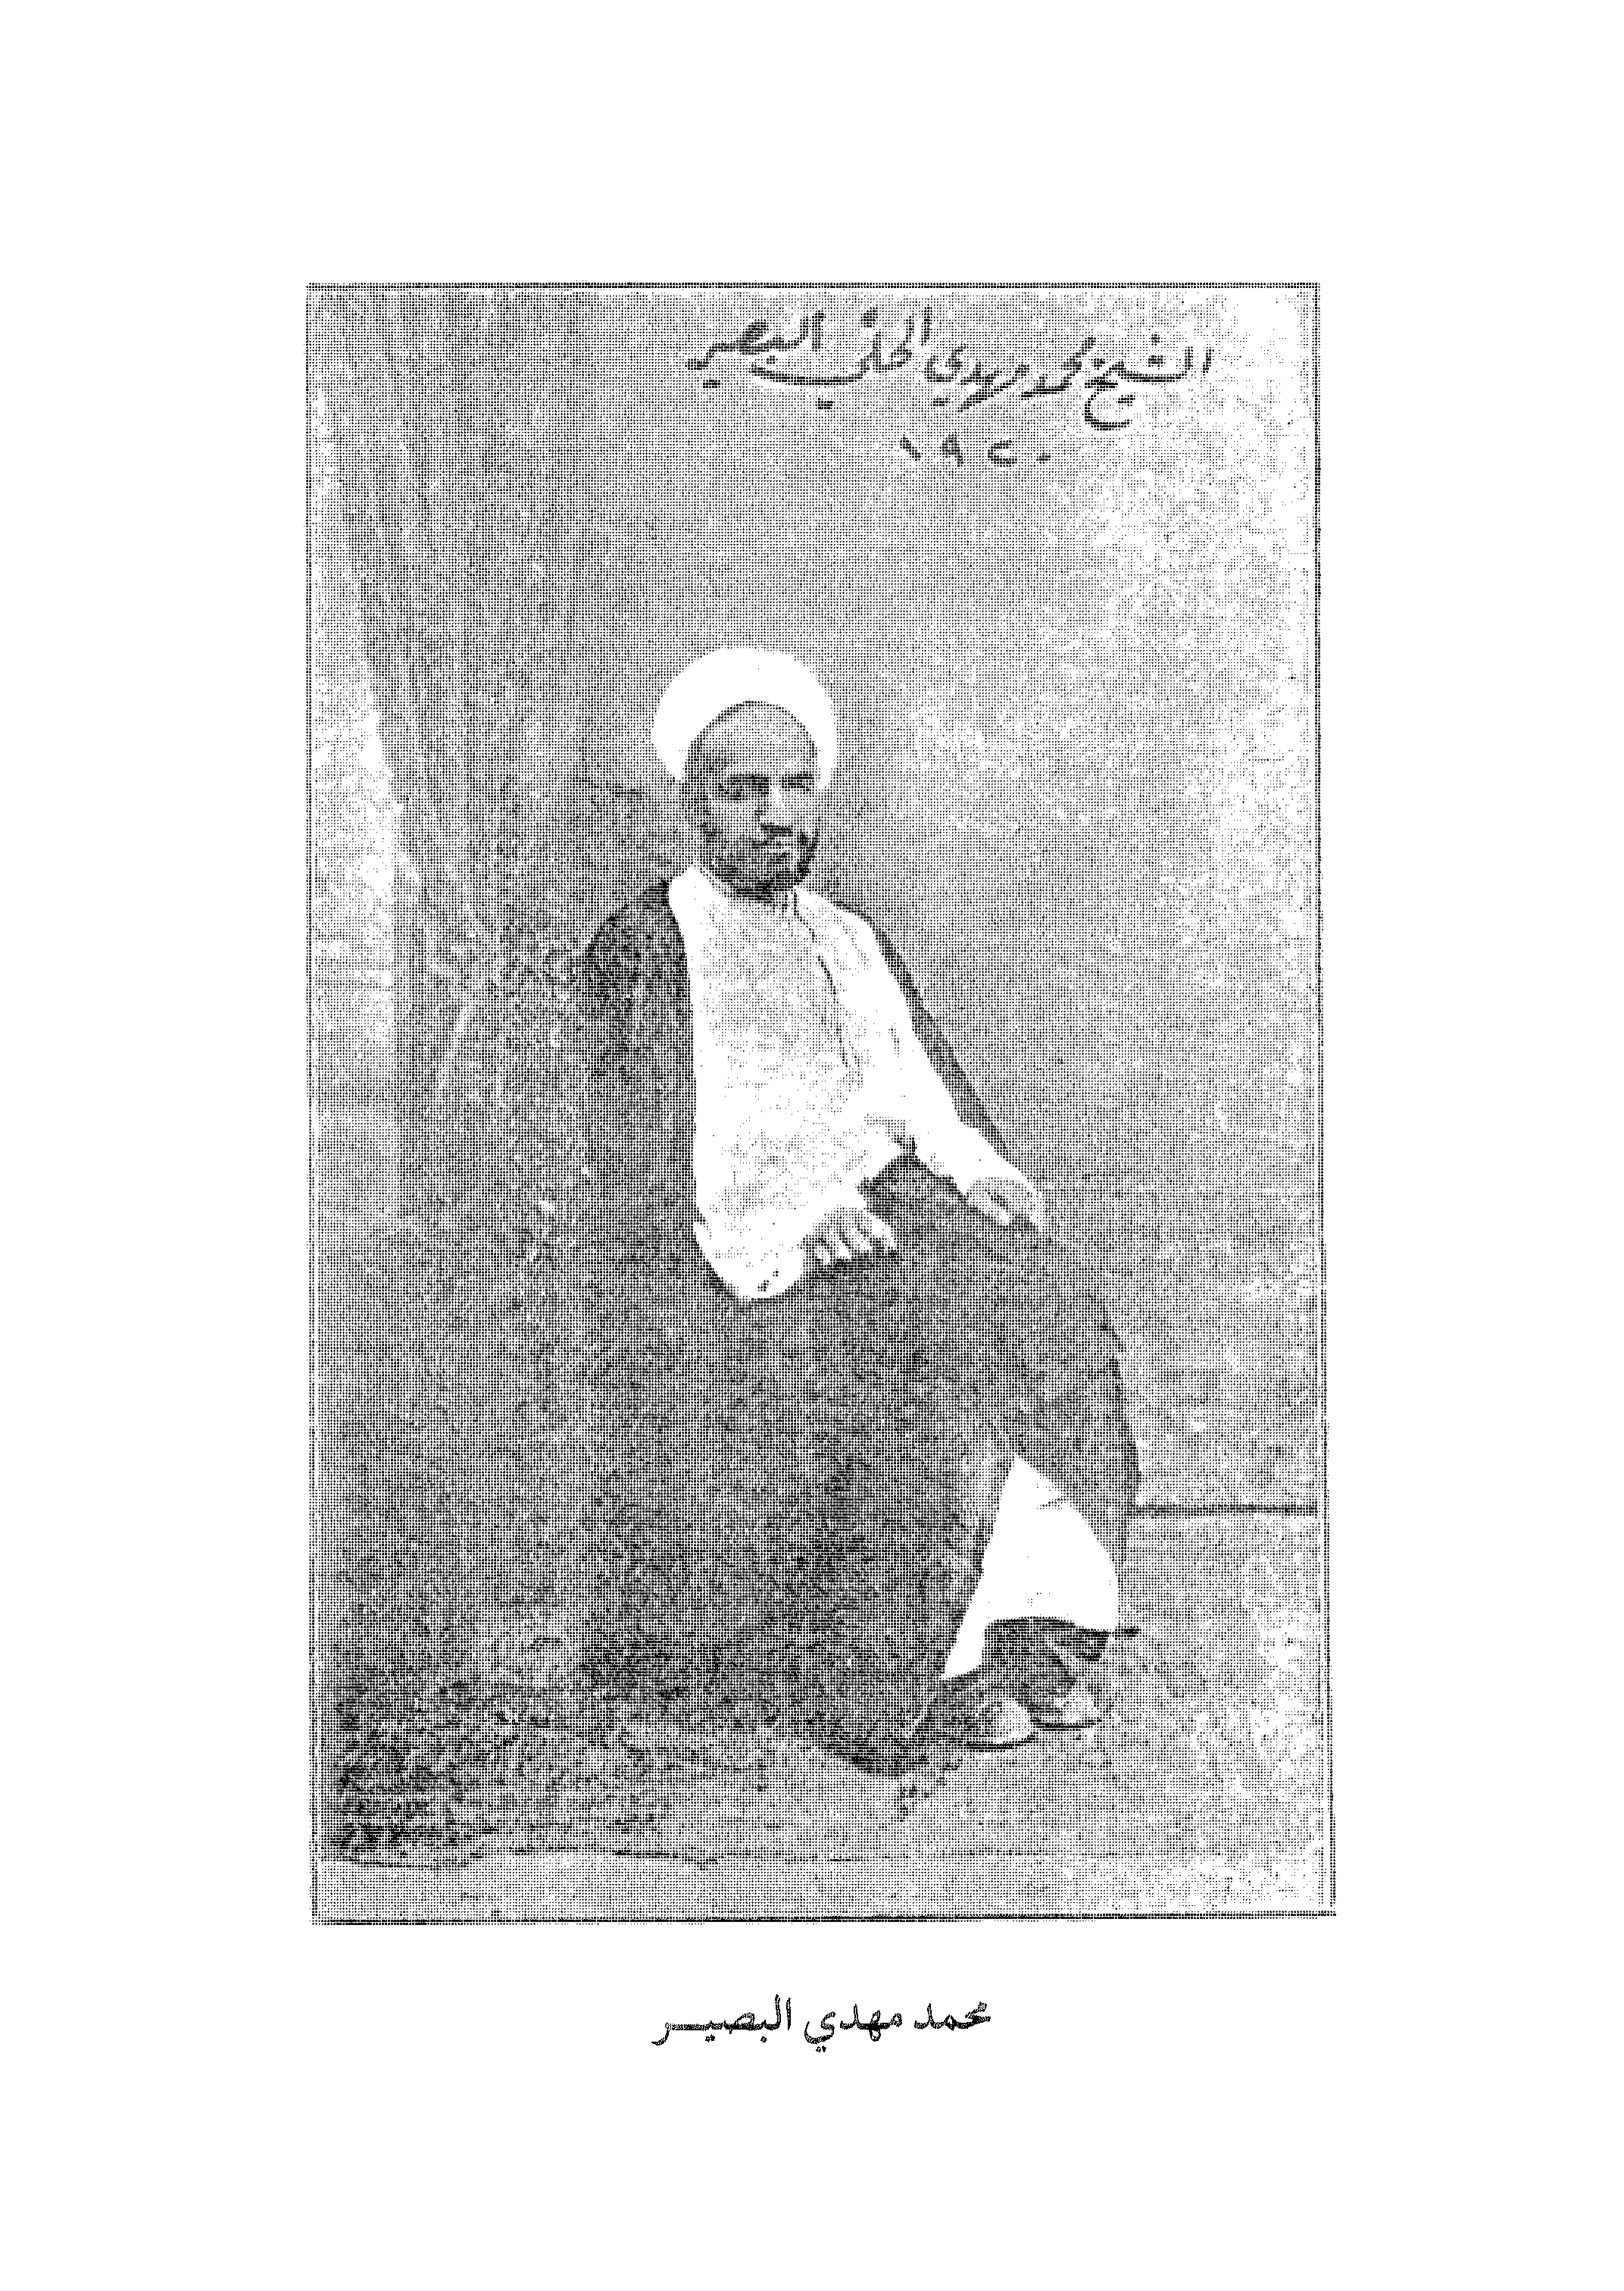 الشيخ محمد مهدي الحلي البصير
١٩٢٠
محمد مهدي البصيـر